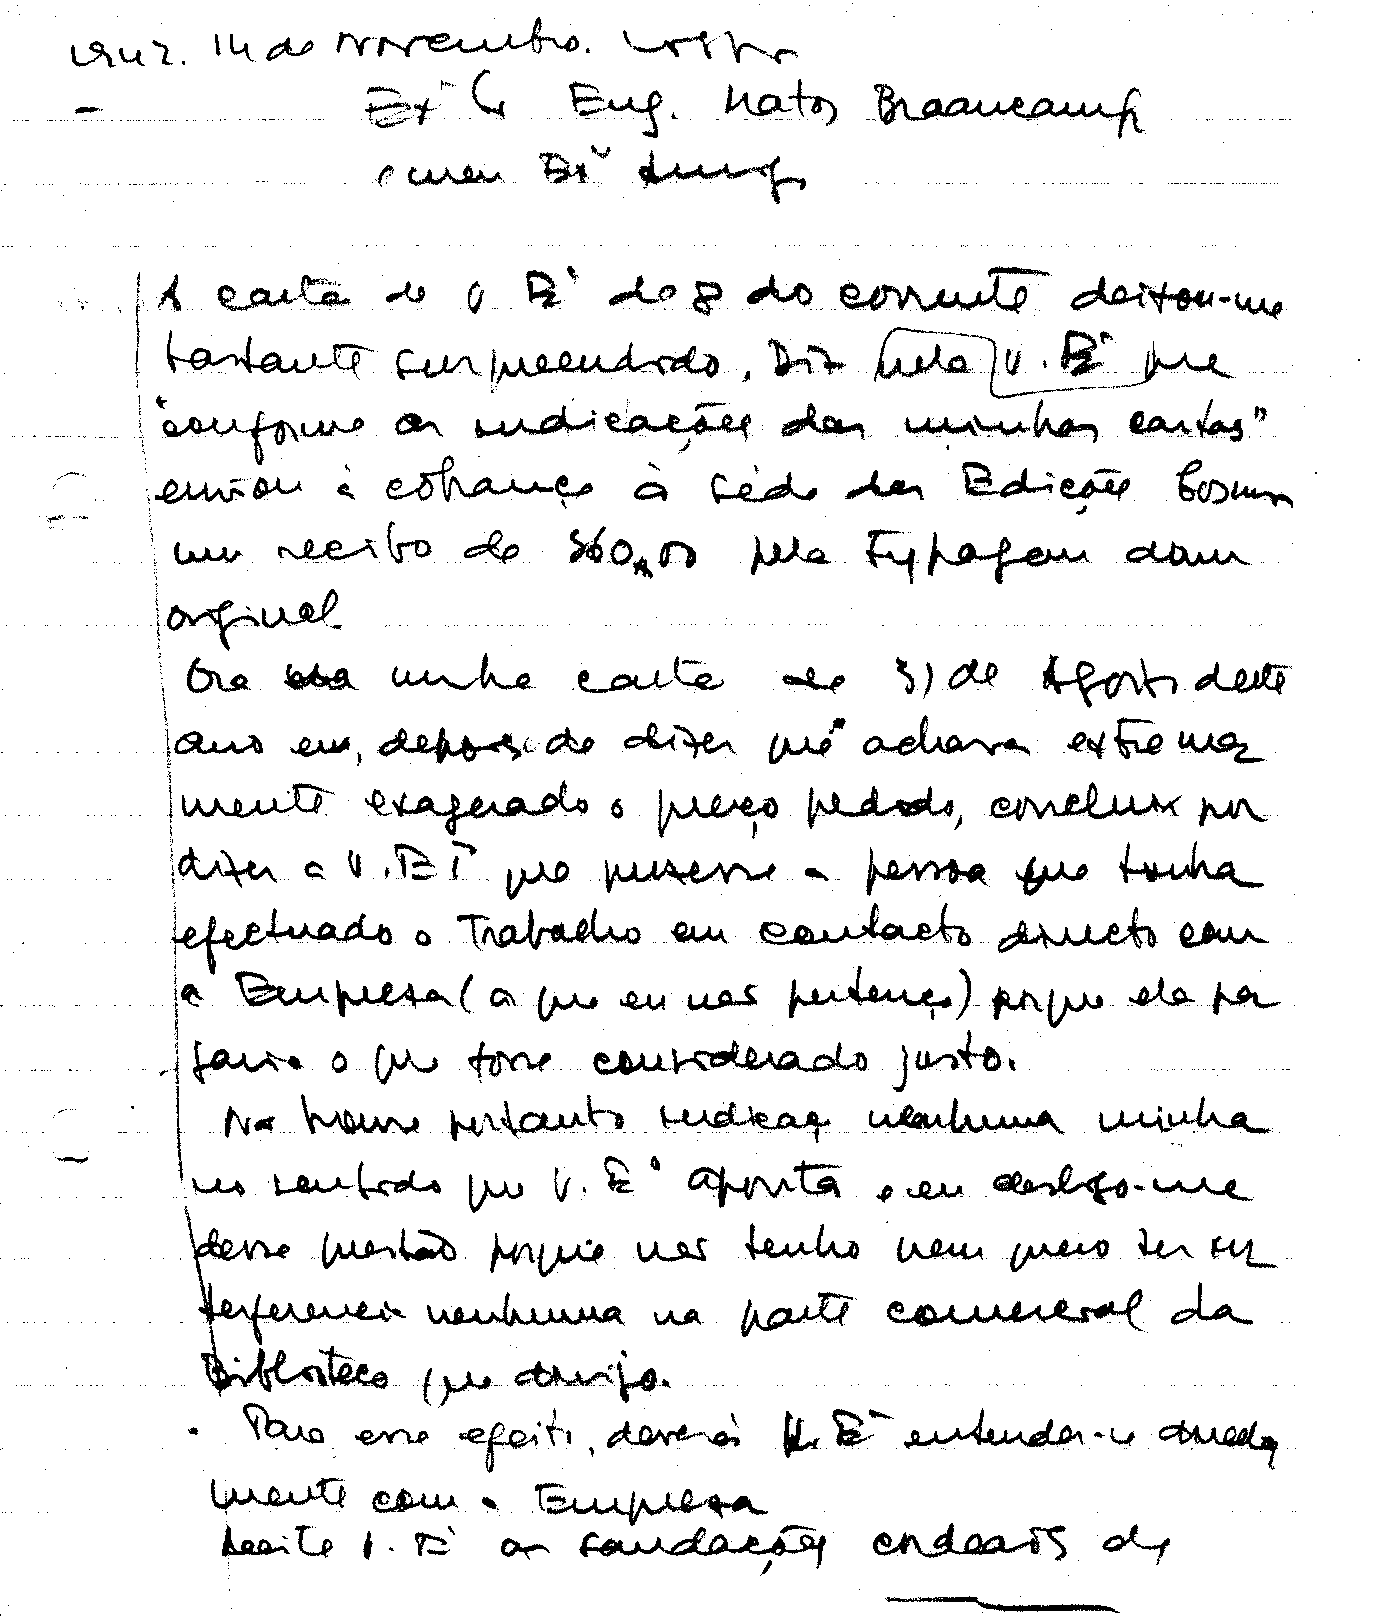 1942. 14 de Novembro. Lisboa
Exº Sr Eng. Matos Braancamp
e meu Exº Amigo
A carta de V. Exª de 8 do corrente deixou-me
bastante surpreendido. Diz nela V. Exª que
"conforme as indicações das minhas cartas"
enviou à cobrança à séde das Edições Cosmos
um recibo de 360$00 pela typagem dum
original
Ora na minha carta de 31 de Agosto deste
ano eu, depois de dizer que achava extrema
mente exagerado o preço pedido, conclui por
dizer a V. Exª que pusesse a pessoa que tinha
efectuado o trabalho em contacto directo com
a Empresa (a que eu não pertenço) porque ela pa
garia o que fosse considerado justo.
Não houve portanto indicação nenhuma minha
no sentido que V. Exª aponta e eu desligo-me
dessa questão porque não tenho nem quero ter in
terferencia nenhuma na parte comercial da
Biblioteca que dirijo.
Para esse efeito, deverá V. Exª entender-se directa
mente com a Empresa
Aceite V. Exª as saudações cordeais de